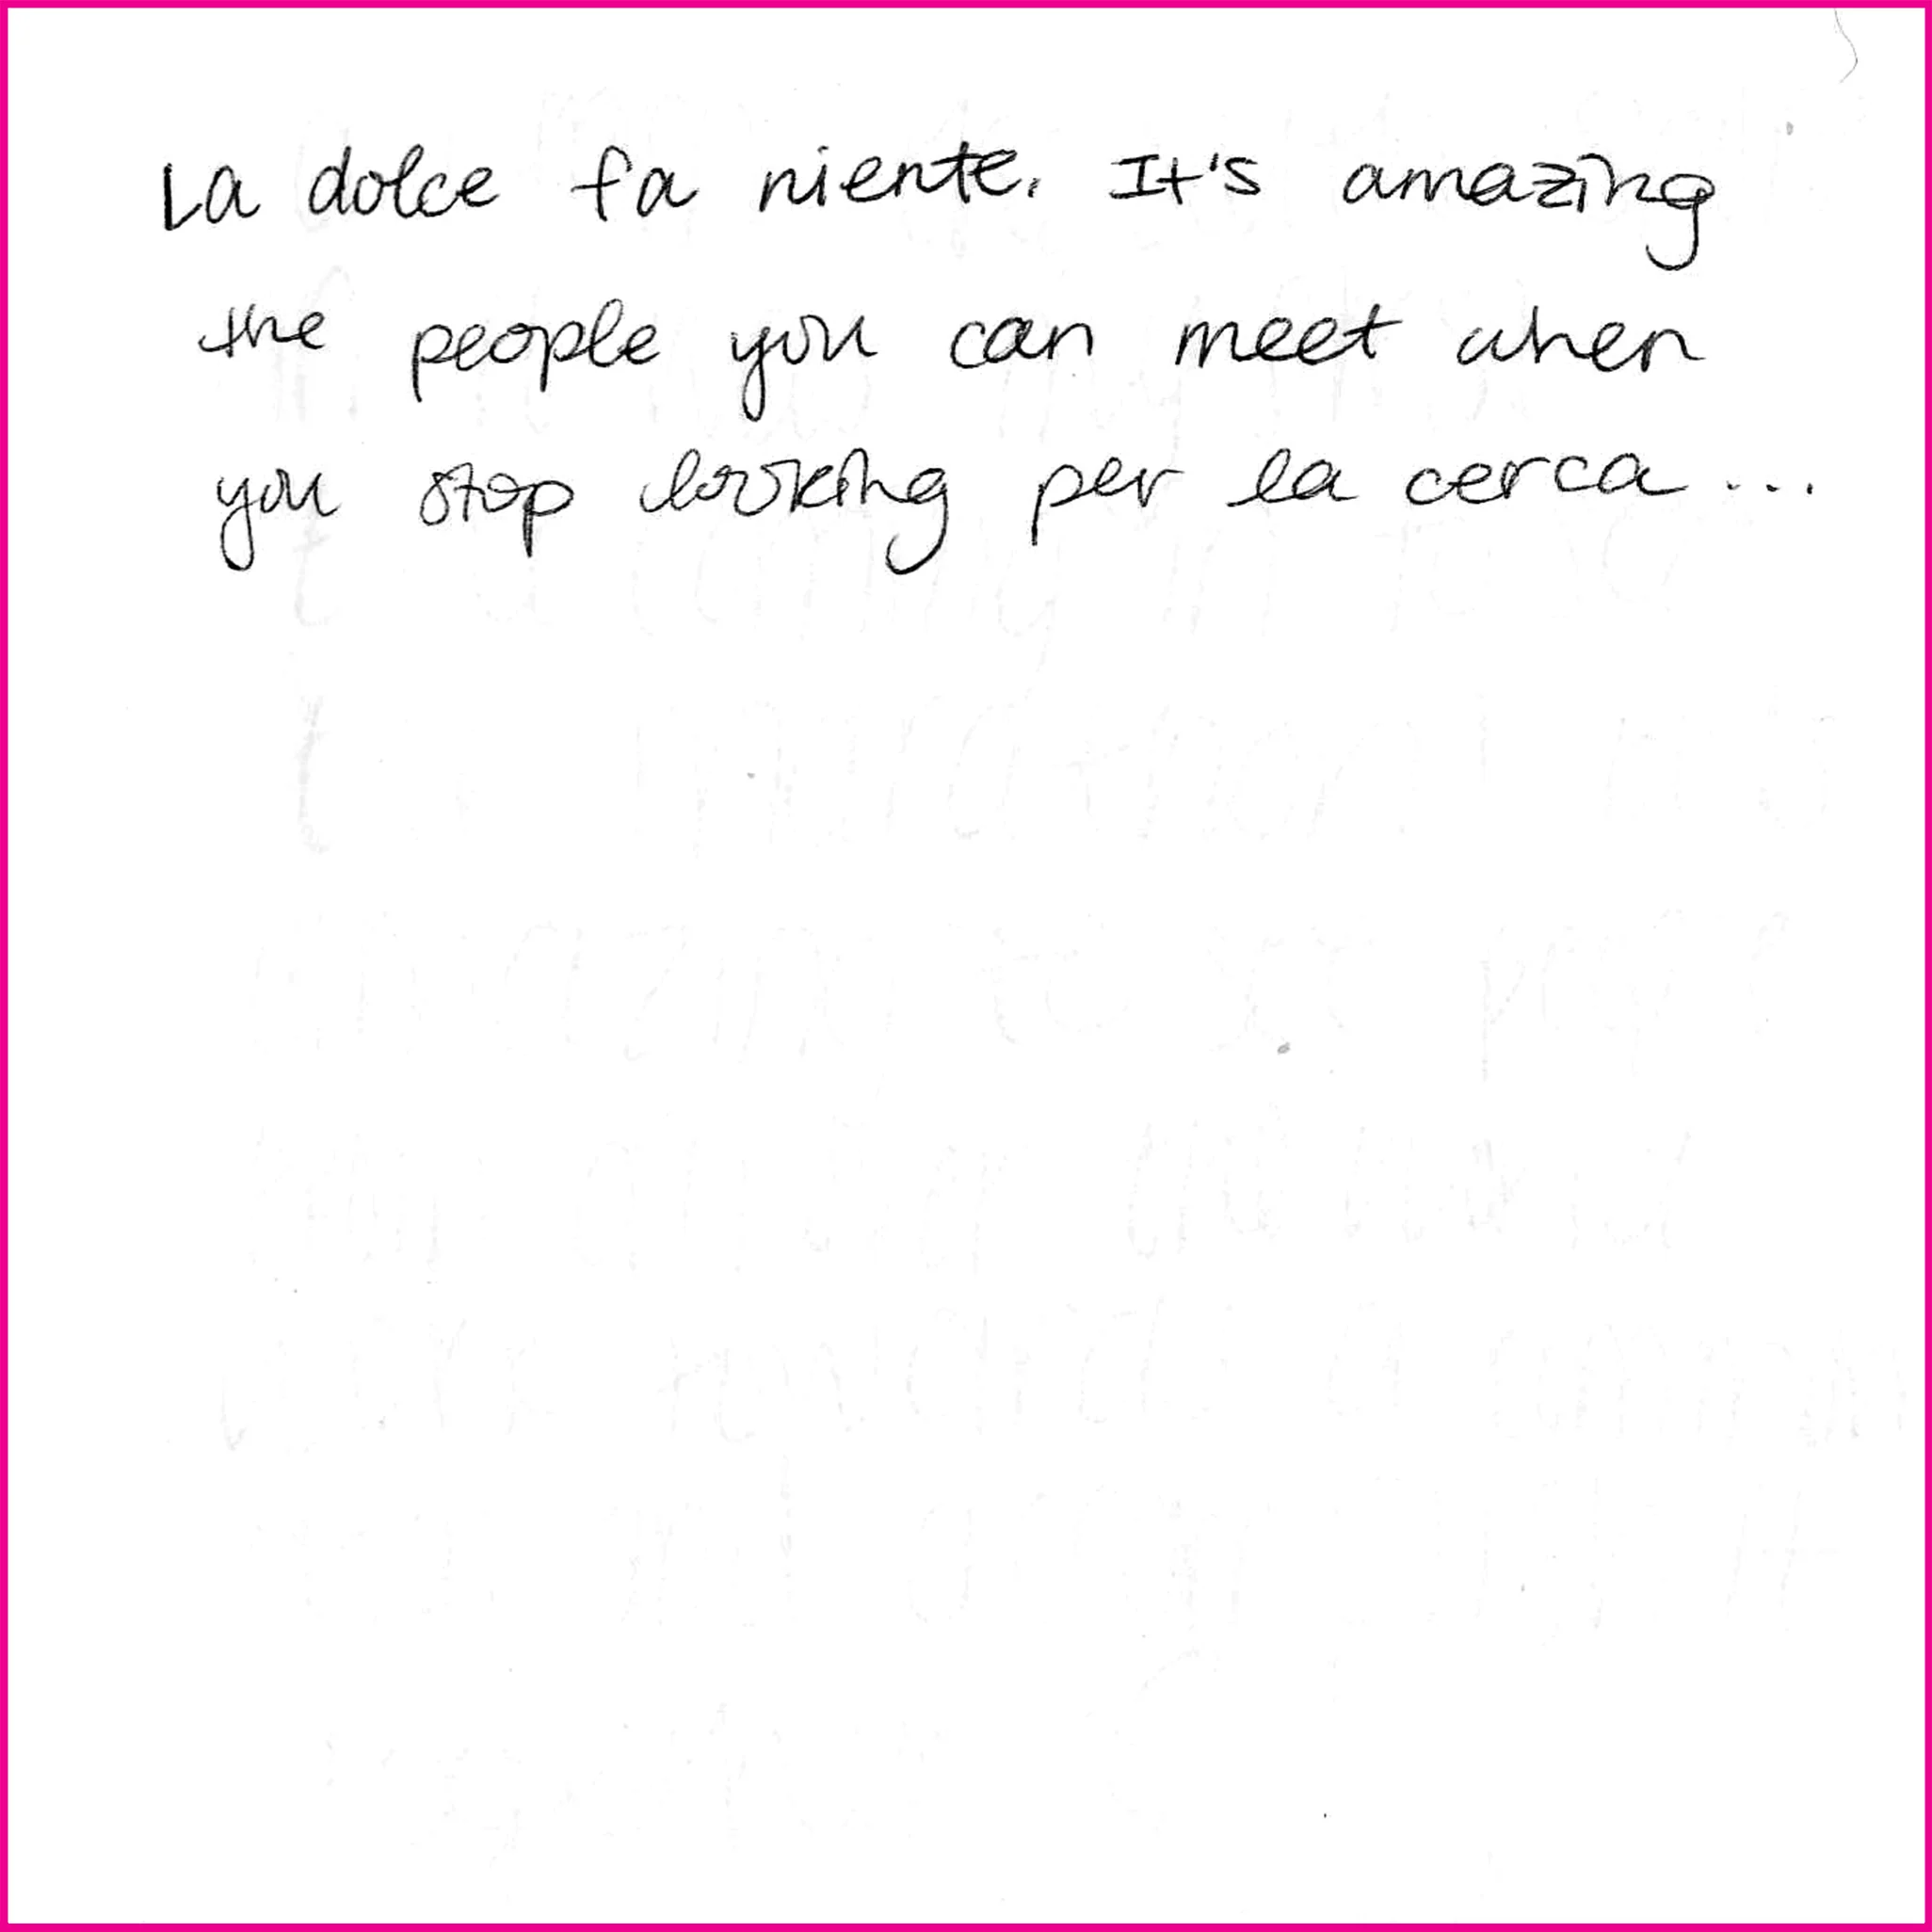 La dolce fa niente. It's amazing
the people you can meet when
you stop looking per la cerca...